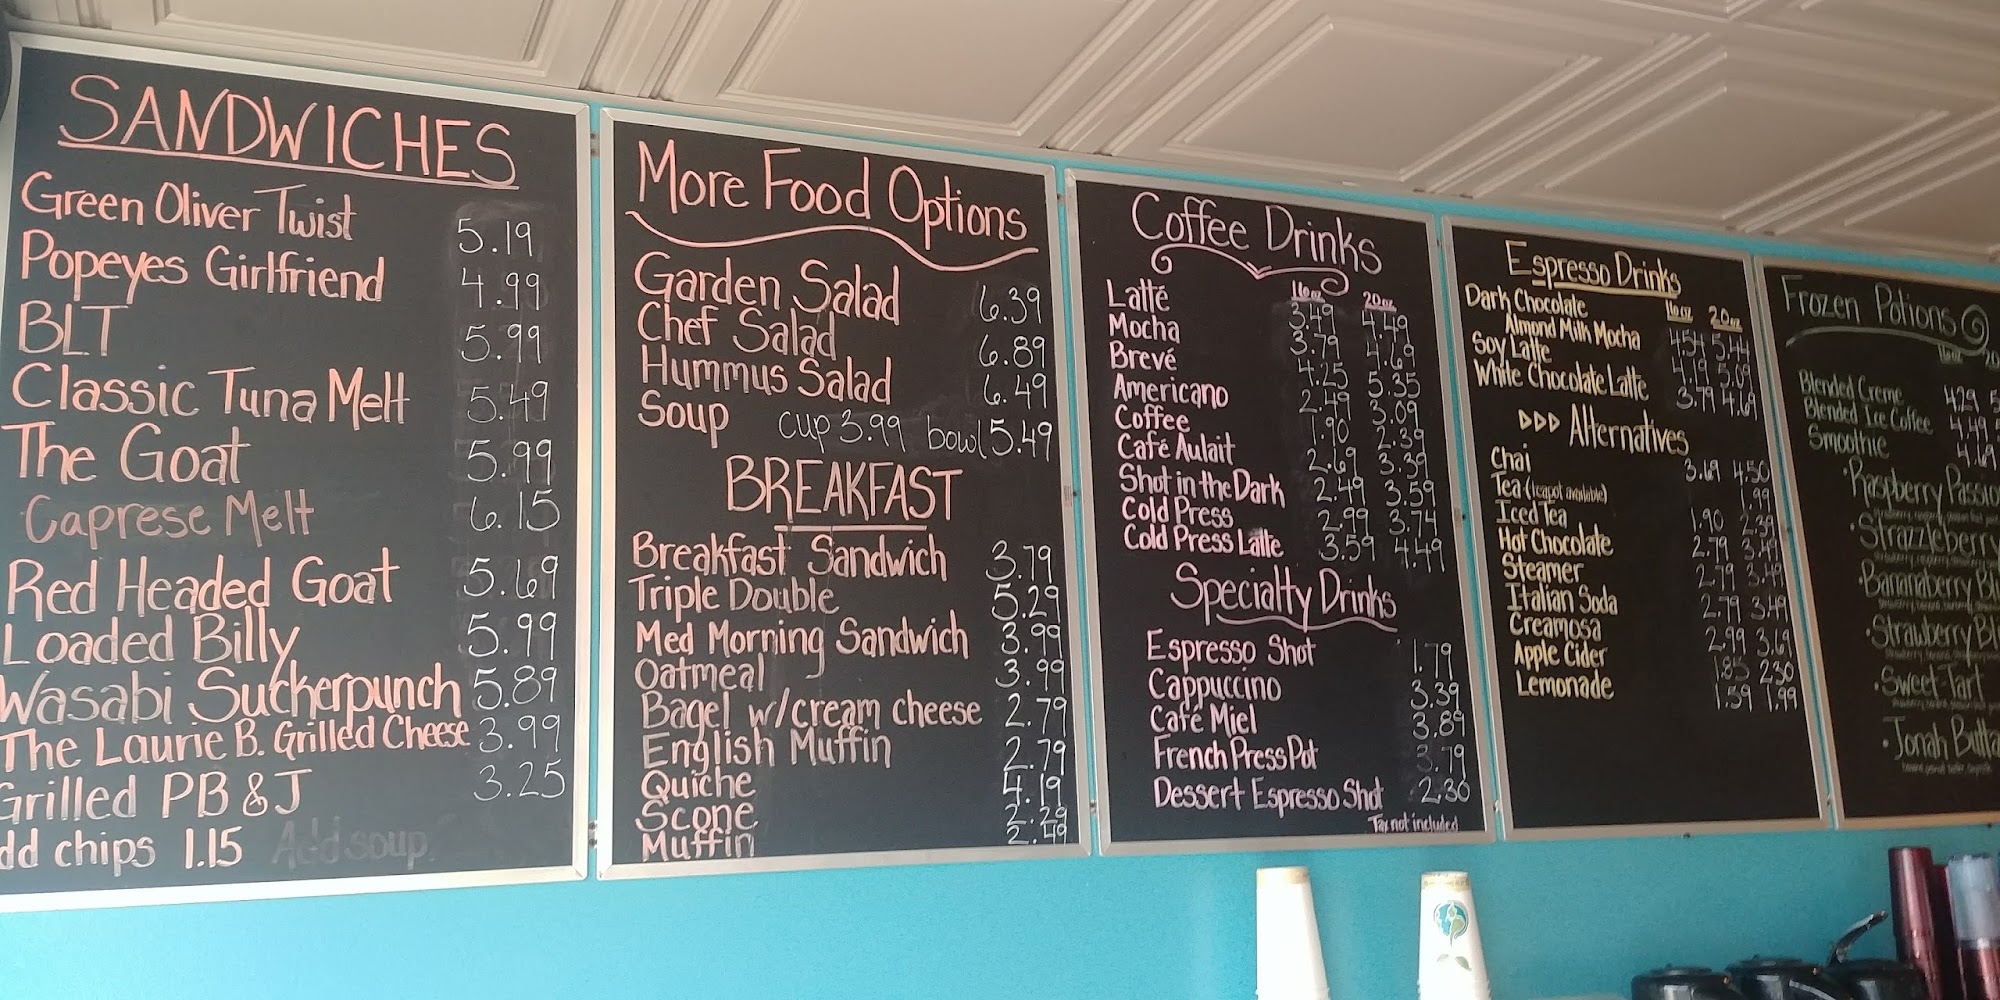 SANDWICHES
Green Oliver Twist 5.19
Popeyes Girlfriend 4.99
BLT 5.99
Classic Tuna Melt 5.49
The Goat 5.99
Caprese Melt 6.15
Red Headed Goat 5.69
Loaded Billy 5.99
Wasabi Suckerpunch 5.89
The Laurie B. Grilled Cheese 3.99
Grilled PB & J 3.25
dd chips 1.15 Add soup
More Food Options
Garden Salad 6.39
Chef Salad 6.89
Hummus Salad 6.49
Soup cup 3.99 bowl 5.49
BREAKFAST
Breakfast Sandwich 3.79
Triple Double 5.29
Med Morning Sandwich 3.99
Oatmeal 3.99
Bagel w/cream cheese 2.79
English Muffin 2.79
Quiche 4.19
Scone 2.29
Muffin 2.49
Coffee Drinks
16oz 20oz
Latté 3.49 4.49
Mocha 3.79 4.69
Brevé 4.25 5.35
Americano 2.49 3.09
Coffee 1.90 2.39
Café Aulait 2.69 3.39
Shot in the Dark 2.49 3.59
Cold Press 2.99 3.74
Cold Press Latte 3.59 4.49
Specialty Drinks
Espresso Shot 1.79
Cappuccino 3.39
Café Miel 3.89
French Press Pot 3.79
Dessert Espresso Shot 2.30
Tax not included
Espresso Drinks
16oz 20oz
Dark Chocolate
Almond Milk Mocha 4.54 5.44
Soy Latte 4.19 5.09
White Chocolate Latte 3.79 4.69
Alternatives
Chai 3.69 4.50
Tea (teapot available) 1.99
Iced Tea 1.90 2.39
Hot Chocolate 2.79 3.49
Steamer 2.79 3.49
Italian Soda 2.79 3.49
Creamosa 2.99 3.69
Apple Cider 1.85 2.30
Lemonade 1.59 1.99
Frozen Potions
16oz
Blended Creme 4.29
Blended Ice Coffee 4.49
Smoothie 4.69
Raspberry Passio
Strazzleberry
Bananaberry
Strawberry
Sweet-Tart
Jonah Butta